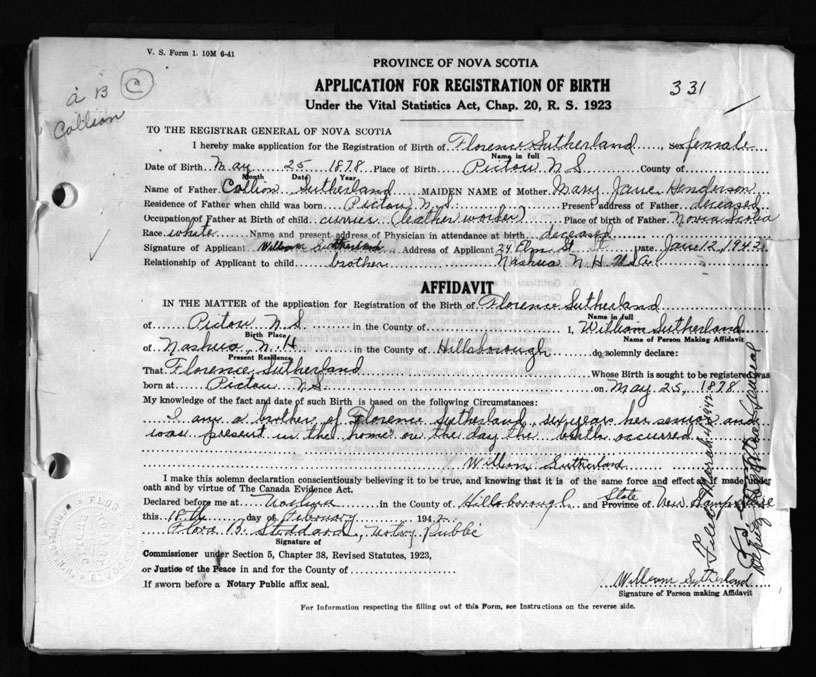 V. S. Form 1. 10M 6-41
PROVINCE OF NOVA SCOTIA
APPLICATION FOR REGISTRATION OF BIRTH
331
Under the Vital Statistics Act, Chap. 20, R. S. 1923
a B C
Collion
TO THE REGISTRAR GENERAL OF NOVA SCOTIA
I hereby make application for the Registration of Birth of Florence Sutherland, sex female
Name in full
Date of Birth May 25 1878 Place of Birth Pictou N S County of
Month Date Year
Name of Father Collion Sutherland MAIDEN NAME of Mother Mary Jane Henderson
Residence of Father when child was born Pictou N. S. Present address of Father deceased
Occupation of Father at Birth of child currier (leather worker) Place of birth of Father Nova Scotia
Race white Name and present address of Physician in attendance at birth deceased
Signature of Applicant William Sutherland Address of Applicant 24 Elm St date June 12, 1942
Relationship of Applicant to child brother Nashua N H U.S.A.
AFFIDAVIT
IN THE MATTER of the application for Registration of the Birth of Florence Sutherland
Name in full
of Pictou N S in the County of I, William Sutherland
Birth Place Name of Person Making Affidavit
of Nashua, N. H in the County of Hillsborough do solemnly declare:
Present Residence
That Florence Sutherland Whose Birth is sought to be registered was
born at Pictou N S on May 25, 1878
My knowledge of the fact and date of such Birth is based on the following Circumstances:
I am a brother of Florence Sutherland, six years her senior and
was present in the home on the day the birth occurred
William Sutherland
I make this solemn declaration conscientiously believing it to be true, and knowing that it is of the same force and effect as if made under
oath and by virtue of The Canada Evidence Act.
Declared before me at Nashua in the County of Hillsborough State and Province of New Hampshire
this 18th day of February 1942
Flora B. Stoddard, Notary Public
Signature of
Commissioner under Section 5, Chapter 38, Revised Statutes, 1923,
or Justice of the Peace in and for the County of
If sworn before a Notary Public affix seal.
William Sutherland
Signature of Person making Affidavit
For Information respecting the filling out of this Form, see Instructions on the reverse side.
Filed March 4 1942
Deputy Registrar General